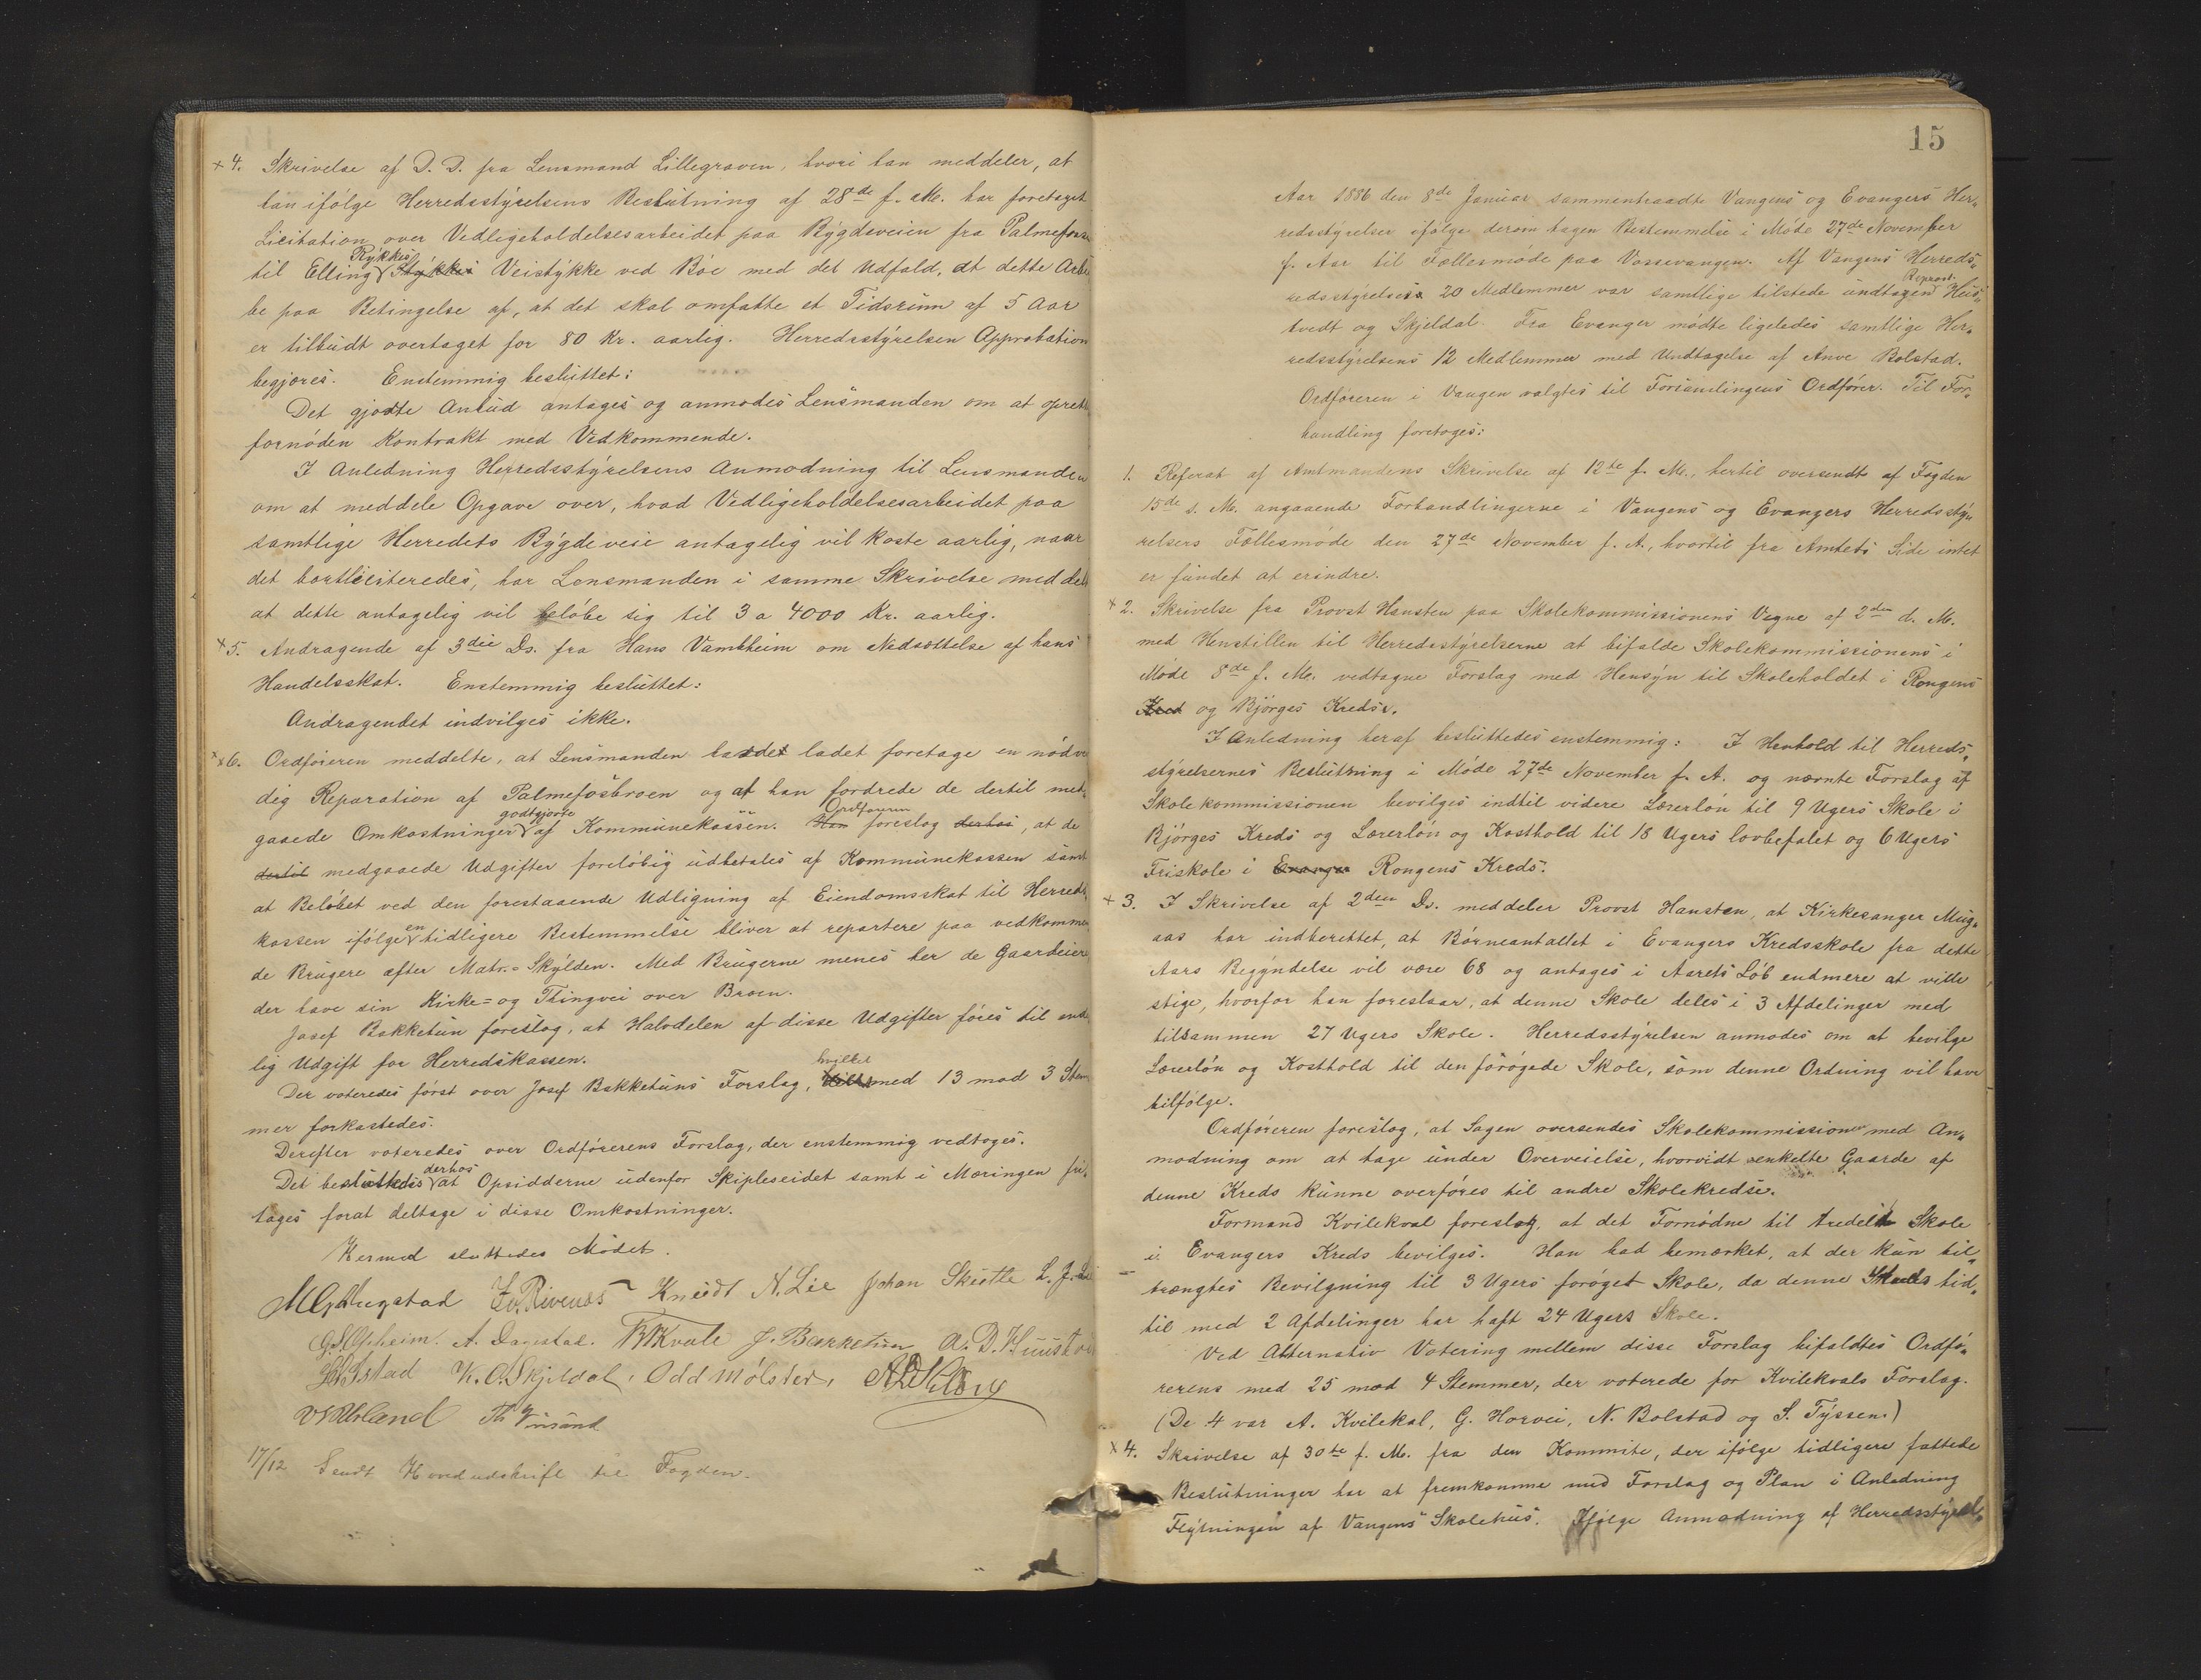 +4. Skrivelse af D. D. fra Lensmand Lillegraven, hvori han meddeler, at
han ifølge Herredsstyrelsens Beslutning af 28de f. M. har foretaget
Licitation over Vedligeholdelsesarbeidet paa Bygdeveien fra Palmefoss
Rykkes
til Elling Stykkes Veistykke ved Bøe med det Udfald, at dette Arbei
be paa Betingelse af, at det skal omfatte et Tidsrum af 5 Aar
er tilbudt overtaget for 80 Kr. aarlig. Herredsstyrelsen Approbation
begjæres. Enstemmig besluttet:
Det gjorte Anbud antages og anmodes Lensmanden om at oprett
fornøden Kontrakt med Vedkommende.
I Anledning Herredsstyrelsens Anmodning til Lensmanden
om at meddele Opgave over, hvad Vedligeholdelsesarbeidet paa
samtlige Herredets Bygdeveie antagelig vil koste aarlig, naar
det bortliciteredes, har Lensmanden i samme Skrivelse meddelt
at dette antagelig vil beløbe sig til 3 a 4000 Kr. aarlig.
+5. Andragende af 3die Ds. fra Hans Vambheim om Nedsættelse af hans
Handelsskat. Enstemmig besluttet:
Andragendet indvilges ikke.
+6. Ordføreren meddelte, at Lensmanden havde ladet foretage en nødven
dig Reparation af Palmefosbroen og at han fordrede de dertil med,
godtgjorte Ordføreren
gaaede Omkostninger af Kommunekassen. Han foreslog derhos, at de
dertil medgaaede Udgifter foreløbig udbetales af Kommunekassen samt
at Beløbet ved den forestaaende Udligning af Eiendomsskat til Herreds,
en
kassen ifølge tidligere Bestemmelse bliver at repartere paa vedkommen
de Brugere efter Matr.=Skylden. Med Brugerne menes her de Gaardeiere
der have sin Kirke= og Thingvei over Broen.
Josef Bakketun foreslog, at Halvdelen af disse Udgifter føres til end
lig Udgift for Herredskassen.
hvilket
Der voteredes først over Josef Bakketuns Forslag, med 13 mod 3 Stem
mer forkastedes.
Derefter voteredes over Ordførerens Forslag, der enstemmig vedtoges.
derhos
Det besluttedes at Opsidderne udenfor Skipleseidet samt i Mæringen fri,
tages forat deltage i disse Omkostninger.
Hermed sluttedes Mødet.
Iv. Rivenæs Knudt N. Lie Johan Skutle L. J.
G. S. Opheim. A. Dagestad. J. Bakketun A. D.
K. O. Skjeldal, Odd Mølster,
17/12 Sendt Hovedudskrift til Fogden.
15
Aar 1886 den 8de Januar sammentraadte Vangens og Evangers Her,
redsstyrelser ifølge derom tagen Bestemmelse i Møde 27de November
f. Aar til Fællesmøde paa Vossevangen. Af Vangens Herreds,
Repræst.
redsstyrelses 20 Medlemmer var samtlige tilstede undtagen Heis,
tvedt og Skjeldal. Fra Evanger mødte ligeledes samtlige Her,
redsstyrelsens 12 Medlemmer med Undtagelse af Anve Bolstad.
Ordføreren i Vangen valgtes til Forsamlingens Ordfører. Til For,
handling foretoges:
1. Referat af Amtmandens Skrivelse af 12te f. M., hertil oversendt af Fogden
15de s. M. angaaende Forhandlingerne i Vangens og Evangers Herredssty,
relsers Fællesmøde den 27de November f. A., hvortil fra Amtets Side intet
er fundet at erindre.
+2. Skrivelse fra Provst Hansten paa Skolekommissionens Vegne af 2den d. M.
med Henstillen til Herredsstyrelserne at bifalde Skolekommissionens i
Møde 8de f. M. vedtagne Forslag med Hensyn til Skoleholdet i Rongens
Kred og Bjørges Kredse.
I Anledning heraf besluttedes enstemmig: I Henhold til Herreds,
styrelsernes Beslutning i Møde 27de November f. A. og nævnte Forslag af
Skolekommissionen bevilges indtil videre Lærerløn til 9 Ugers Skole i
Bjørges Kreds og Lærerløn og Kosthold til 18 Ugers lovbefalet og 6 Ugers
Friskole i Evanger Rongens Kreds.
+3. I Skrivelse af 2den Ds. meddeler Provst Hansten, at Kirkesanger Mug,
aas har indberettet, at Børneantallet i Evangers Kredsskole fra dette
Aars Begyndelse vil være 68 og antages i Aarets Løb endmere at ville
stige, hvorfor han foreslaar, at denne Skole deles i 3 Afdelinger med
tilsammen 27 Ugers Skole. Herredsstyrelsen anmodes om at bevilge
Lærerløn og Kosthold til den forøgede Skole, som denne Ordning vil have
tilfølge.
Ordføreren foreslog, at Sagen oversendes Skolekommissionen med An,
modning om at tage under Overveielse, hvorvidt enkelte Gaarde af
denne Kreds kunne overføres til andre Skolekredse.
Formand Kvilekval foreslog, at det Fornødne til tredelt Skole
i Evangers Kreds bevilges. Han bad bemærket, at der kun til,
trængtes Bevilgning til 3 Ugers forøget Skole, da denne Skoles tid,
til med 2 Afdelinger har haft 24 Ugers Skole.
Ved Alternativ Votering mellem disse Forslag bifaldtes Ordfø,
rerens med 25 mod 4 Stemmer, der voterede for Kvilekvals Forslag.
(De 4 var A. Kvilekal, G. Horvei, N. Bolstad og S. Tyssen.)
+4. Skrivelse af 30te f. M. fra den Kommite, der ifølge tidligere fattede
Beslutninger har at fremkomme med Forslag og Plan i Anledning
Flytningen af Vangens Skolehus. Ifølge Anmodning af Herredsstyrel,